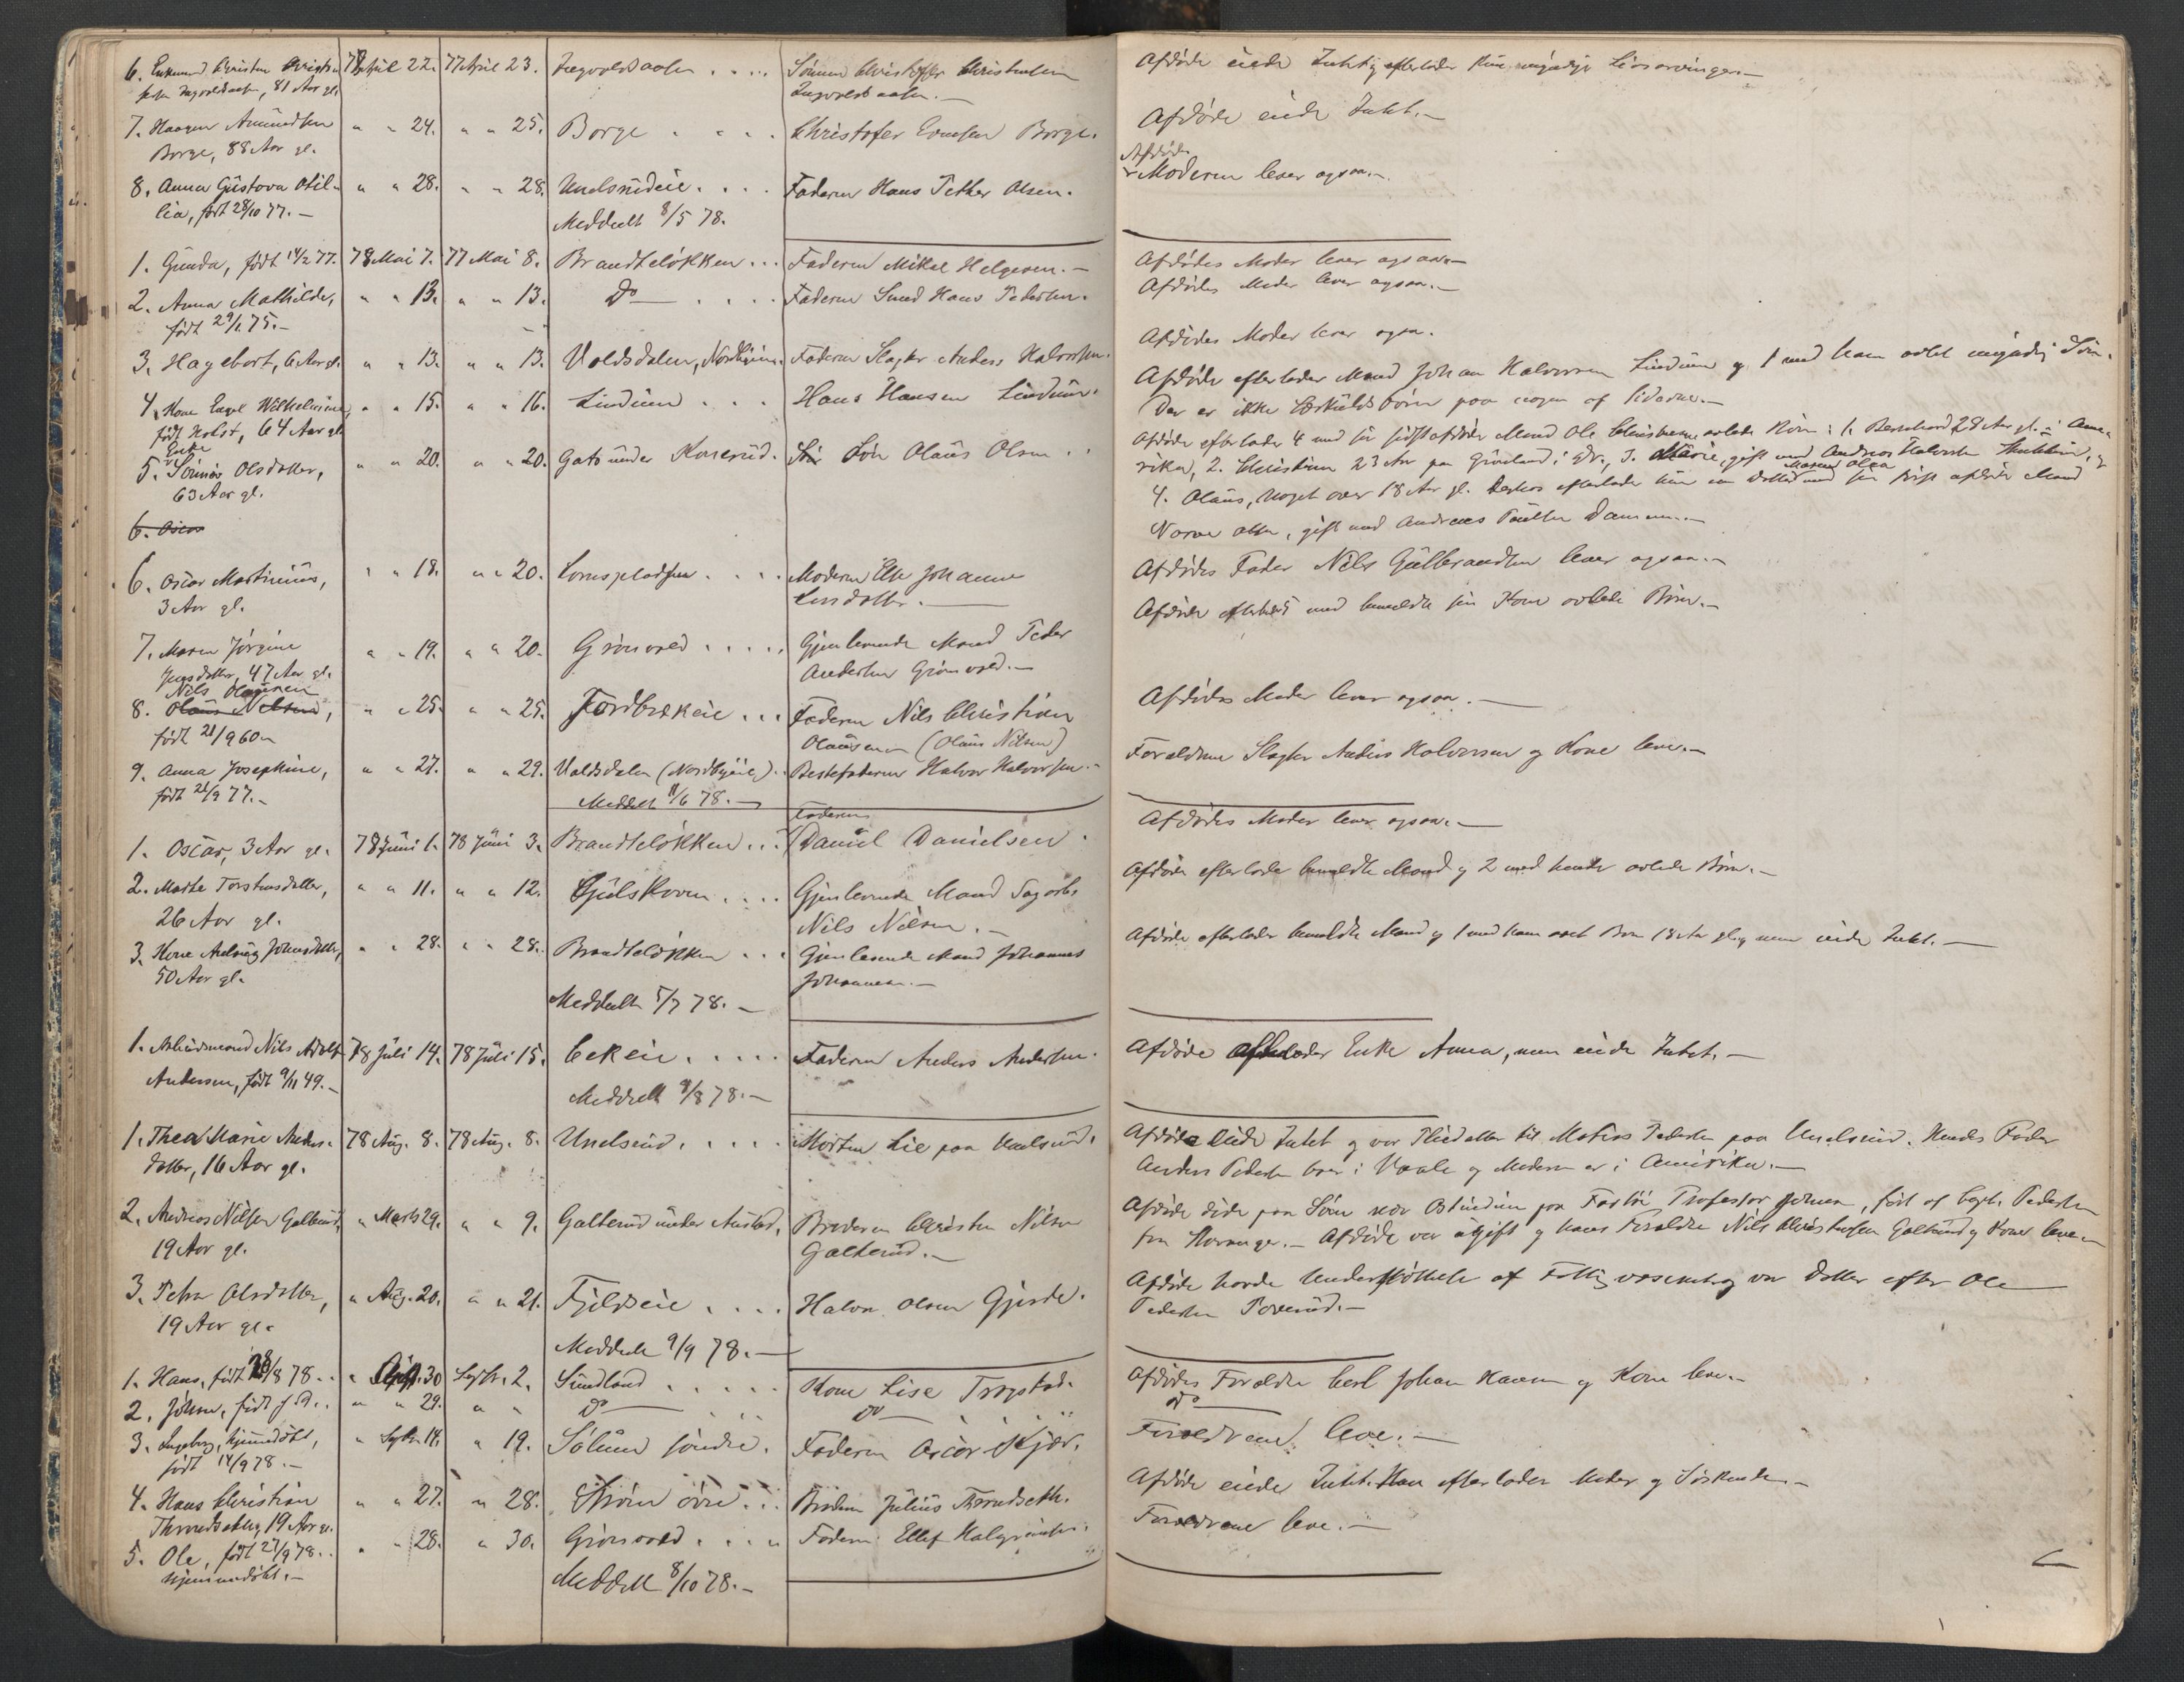 6. Enkemand Christen Christen 78 April 22. 77 April 23. Ingvoldsaasen . . . . Sönnen Christoffer Christensen Afdöde eiede Intet og efterlader kun myndige Livsarvinger.—
sen Ingvoldsaasen, 81 Aar gl. Ingvoldsaasen.—
7. Haagen Amundsen " " 24. " " 25. Borge . . . . Christofer Evensen Borge. Afdöde eiede Intet.—
Borge, 88 Aar gl.
8. Anna Gustava Otil- " " 28. " " 28. Unelsrudeie. . . . Faderen Hans Pether Olsen. Afdödes Moderen lever ogsaa.—
lia, født 28/10 77.— Meddeelt 8/5 78.
1. Gunda, födt 14/2 77. 78 Mai 7. 77 Mai 8. Brandteløkken . . . Faderen Mikal Helgesen.— Afdødes Moder lever ogsaa.—
2. Anna Mathilde, " " 13. " " 13. Do . . . . Faderen Smed Hans Pedersen. Afdödes Moder lever ogsaa.—
födt 29/1 75.—
3. Hagebart, 6 Aar gl. " " 13. " " 13. Valdsdalen, Nordbyeie. Faderen Slagter Anders Halvorsen. Afdödes Moder lever ogsaa.
4. Kone Engel Wilhelmine, " " 15. " " 16. Lindum . . . Hans Hansen Lindum. Afdöde efterlader Mand Johan Halvorsen Lindum og 1 med ham avlet umyndig Sön.
født Holst, 64 Aar gl. Der er ikke Særkuldsbörn paa nogen af Siderne.—
5. Enke Tönnes Olsdatter, " " 20. " " 20. Gata under Korserud. Sön Olaus Olsen . . Afdöde efterlader 4 med sin sidst afdöde Mand Ole Christensen avlede Börn: 1. Bernhard 28 Aar gl. i Ame-
63 Aar gl. rika, 2. Christian 23 Aar paa Grönland i Dr., 3. Marie, gift med Andreas Halvorsen og
6. Oscar 4. Olaus, noget over 18 Aar gl. Derhos efterlader hun en Datter Maren Olea med sin först afdöde Mand
Olsen, gift med Andreas Poulsen Dammen.—
6. Oscar Martinius, " " 18. " " 20. Lornspladsen . . . . Moderen Else Johanne Afdödes Fader Nils Gulbrandsen lever ogsaa.—
3 Aar gl. Larsdatter.—
7. Maren Jørgine " " 19. " " 20. Grönvold . . . . . Gjenlevende Mand Peder Afdöde efterlader 5 med bemeldte sin Kone avlede Börn.—
Jensdatter, 47 Aar gl. Andersen Grönvold.—
8. Nils Olausen Olaus Nilsen, " " 25. " " 25. Fordbrækeie . . . Faderen Nils Christian Afdödes Moder lever ogsaa.—
födt 21/9 60 Olausen (Olaus Nilsen)
9. Anna Josephine, " " 27. " " 29. Valdsdalen (Nordbyeie). Bestefaderen Halvor Halvorsen.— Forældrene Slagter Anders Halvorsen og Kone leve.—
födt 21/9 77.— Meddelt 11/6 78.—
1. Oscar, 3 Aar gl. 78 Juni 1. 78 Juni 3. Brandteløkken . . . Faderen Daniel Danielsen. Afdödes Moder lever ogsaa.—
2. Marte Torstensdatter, " " 11. " " 12. Hjulskoven . . . . Gjenlevende Mand Sagarb. Afdöde efterlader bemeldte Mand og 2 med hende avlede Börn.—
26 Aar gl. Nils Nilsen.—
3. Kone Anlaug Johnsdatter, " " 28. " " 28. Brandteløkken . . . Gjenlevende Mand Johannes Afdöde efterlader bemeldte Mand og 1 med ham avlet Barn 18 Aar gl. og men eiede Intet.—
50 Aar gl. Johannesen.—
Meddeelt 5/7 78.—
1. Arbeidsmand Nils Adolf 78 Juli 14. 78 Juli 15. Bekeie. . . . . Faderen Anders Andersen. Afdöde efterlader Enke Anna, men eiede Intet.—
Andersen, födt 9/11 49.— Meddelt 9/8 78.—
1. Thea Marie Anders- 78 Aug. 8. 78 Aug. 8. Unelsrud. . . . . Morten Lie paa Unelsrud. Afdöde eiede Intet og var Pleiedatter til Mathias Pedersen paa Unelsrud. Hendes Fader
datter, 16 Aar gl. Anders Pedersen bor i Vaale og Moderen er i Amerika.—
2. Andreas Nilsen Galterud, " Marts 29. " " 9. Galterud under Austad. Broderen Christen Nilsen Afdöde döde paa Söen ved Ostindien paa Fartöi Professor Johnsen, fört af Capt. Pedersen
19 Aar gl. Galterud.— fra Stavanger.— Afdöde var ugift og hans Forældre Nils Christensen Galterud og Kone leve.—
3. Petra Olsdatter, " Aug. 20. " " 21. Fjeldseie . . . . Halvor Olsen Gjerde. Afdöde havde Understöttelse af Fattigvæsenet og var Datter efter Ole
19 Aar gl. Pedersen Poverud.—
Meddeelt 9/9 78.—
1. Hans, födt 28/8 78. . " Aug. 30 Septr. 2. Sundland . . . . . Kone Lise Trogstad. Afdödes Forældre Carl Johan Hansen og Kone leve.—
2. Johan, födt s. D. . " " 29. " " Do . . . Do . . . Do
3. Ingeborg, hjemmedöbt, " Septr. 14. " 19. Solum söndre. Faderen Oscar Kjær. Forældrene leve.—
födt 14/9 78.—
4. Hans Christian " " 27. " 28. Ström övre . . . Broderen Julius Throndsæth. Afdöde eiede Intet. Han efterlader Moder og Söskende.—
Throndsæth, 19 Aar gl.
5. Ole, født 27/9 78. . " " 28. " 30. Grönvold . . . . Faderen Ellef Halgrimsen. Forældrene leve.—
hjemmedöbt.— Meddelt 8/10 78.—